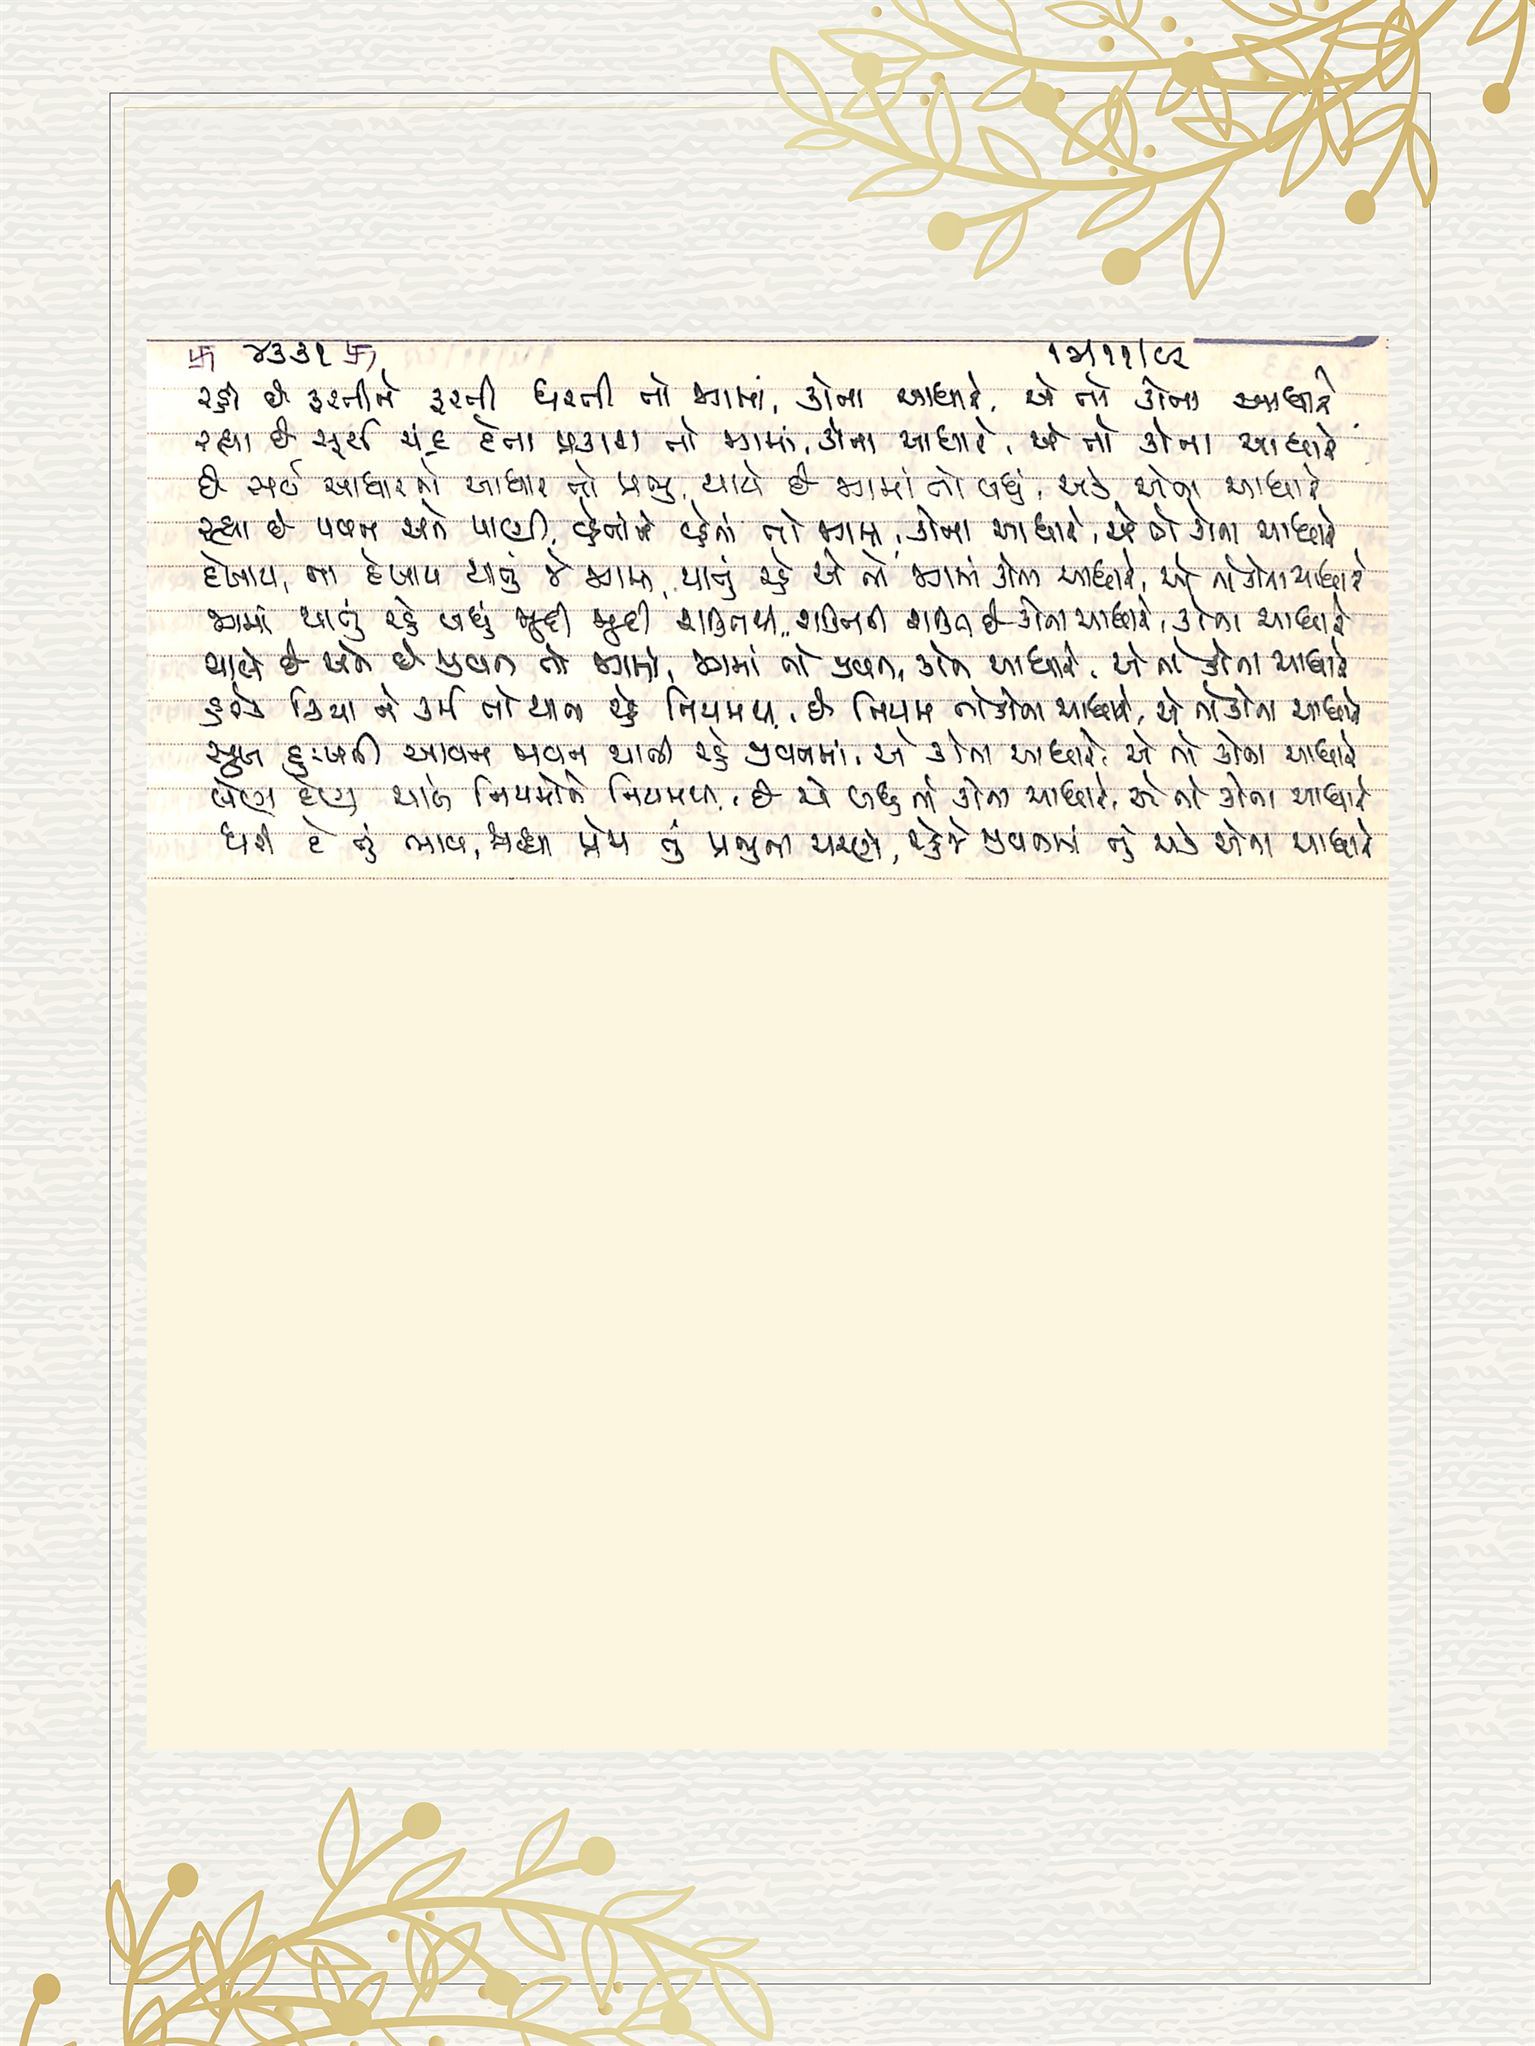 卐 ૪૩૩૧ 卐 ૧૭/૧૧/૯૨
રહી છે ફરતીને ફરતી ધરતી તો જગમાં, કોના આધારે, એ તો કોના આધારે
રહ્યા છે સૂર્ય ચંદ્ર દેતા પ્રકાશ તો જગમાં, કોના આધારે, એ તો કોના આધારે
છે સર્વ આધારનો આધાર તો પ્રભુ, ચાલે છે જગમાં તો બધું, એક એના આધારે
રહ્યા છે પવન અને પાણી, વ્હેતાંને વ્હેતાં તો જગમાં, કોના આધારે, એ તો કોના આધારે
દેખાય, ના દેખાય થાતું જે જગમાં, થાતું રહે એ તો જગમાં કોના આધારે, એ તો કોના આધારે
જગમાં થાતું રહે બધું જુદી જુદી શક્તિથી, શક્તિની શક્તિ છે કોના આધારે, કોના આધારે
ચાલે છે અને છે જીવન તો જગમાં, જગમાં તો જીવન, કોના આધારે, એ તો કોના આધારે
હરેક ક્રિયા ને કર્મ તો થાતા રહે નિયમથી, છે નિયમ તો કોના આધારે, એ તો કોના આધારે
સુખ દુઃખની આવન જાવન થાતી રહે જીવનમાં, એ કોના આધારે, એ તો કોના આધારે
લેણ દેણ ચાલે નિયમોને નિયમથી, છે એ બધું તો કોના આધારે, એ તો કોના આધારે
ધરી દે તું ભાવ, શ્રદ્ધા પ્રેમ તું પ્રભુના ચરણે, રહેજે જીવનમાં તું એક એના આધારે